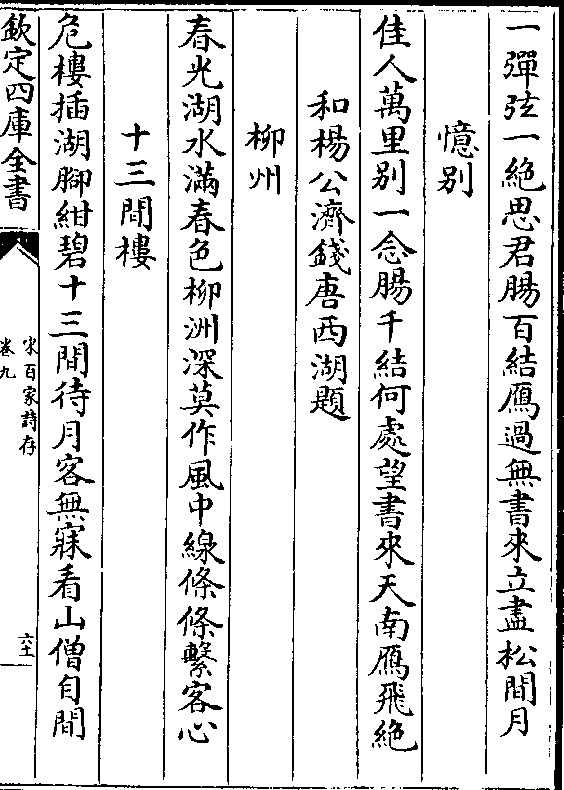 一彈弦一絶思君腸百結鴈過無書來立盡松間月
憶别
佳人萬里别一念腸千結何處望書來天南鴈飛絶
和楊公濟錢唐西湖題
柳州
春光湖水滿春色柳洲深莫作風中線條條繫客心
十三間樓
危樓插湖腳紺碧十三間待月客無寐看山僧自閒
欽定四庫全書
宋百家詩存
卷九